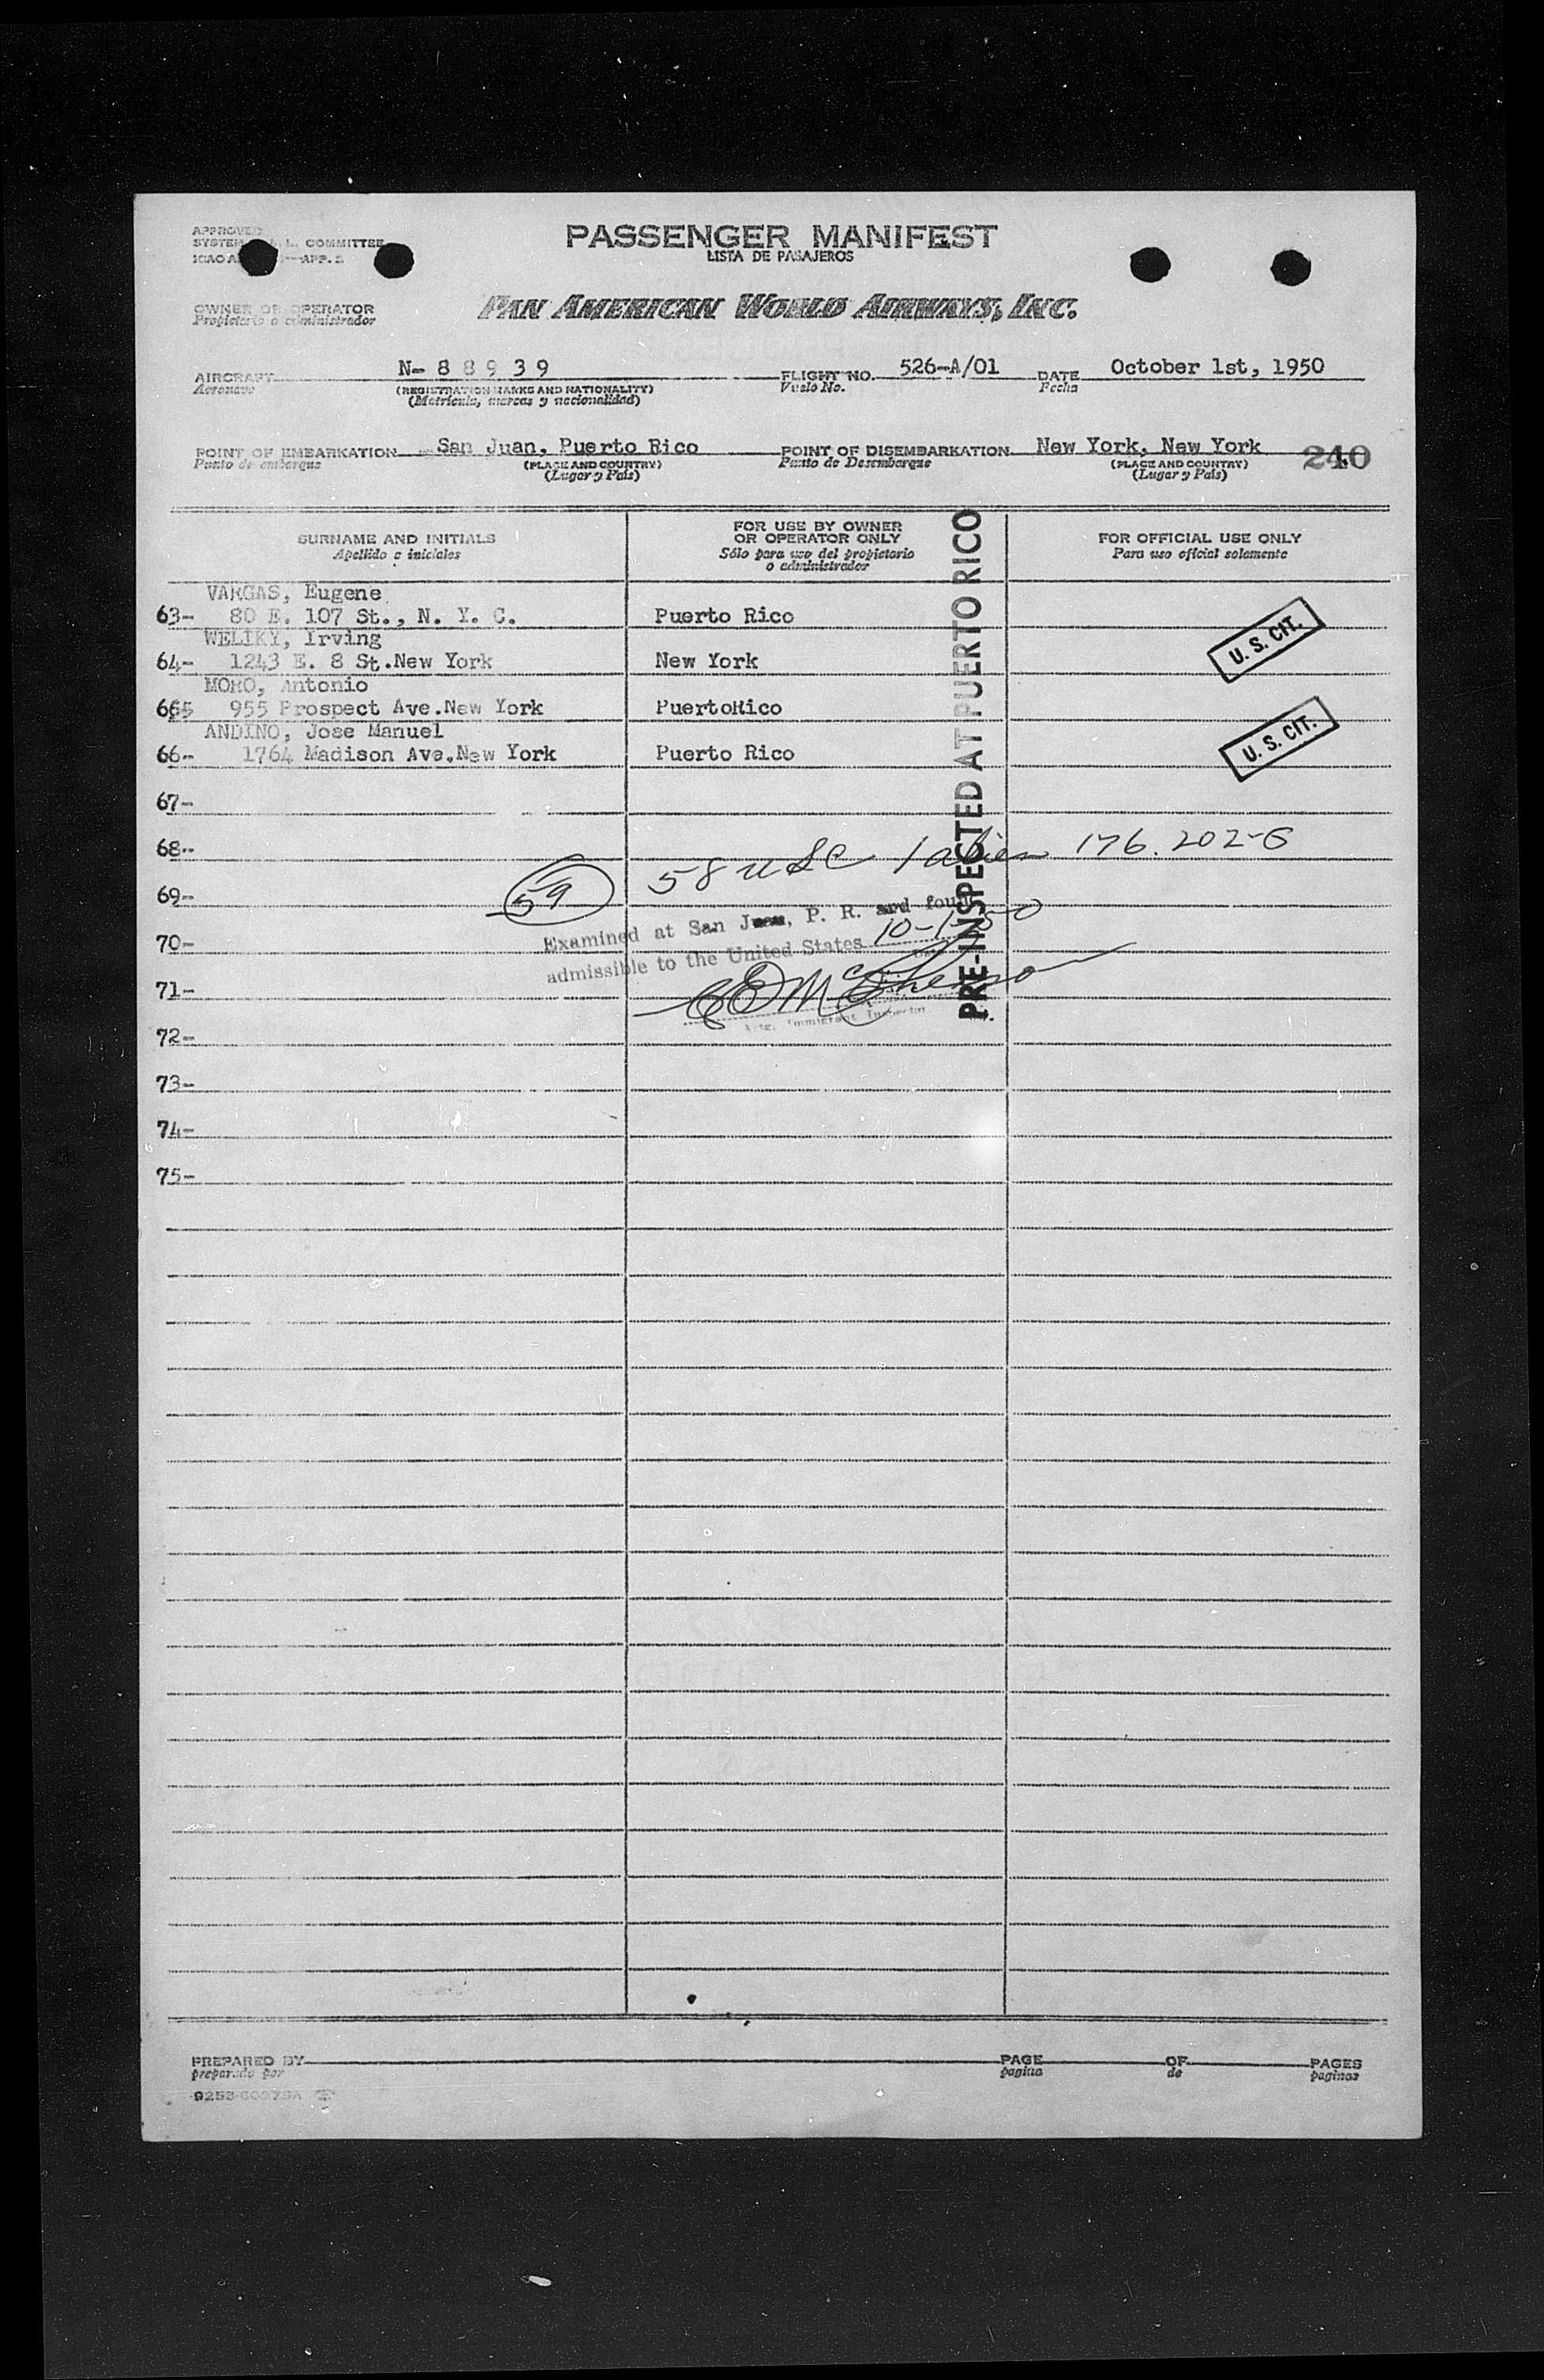 APPROVED
SYSTEM L. COMMITTEE
ICAO A APP. 2
PASSENGER MANIFEST
LISTA DE PASAJEROS
OWNER OR OPERATOR
Propietario o administrador
PAN AMERICAN WORLD AIRWAYS, INC.
AIRCRAFT N- 8 8 9 3 9 FLIGHT NO. 526-A/01 DATE October 1st, 1950
Aeronave (REGISTRATION MARKS AND NATIONALITY) Vuelo No. Fecha
(Matricula, marcas y nacionalidad)
POINT OF EMBARKATION San Juan, Puerto Rico POINT OF DISEMBARKATION New York, New York 240
Punto de embarque (PLACE AND COUNTRY) Punto de Desembarque (PLACE AND COUNTRY)
(Lugar y País) (Lugar y País)
SURNAME AND INITIALS FOR USE BY OWNER OR OPERATOR ONLY FOR OFFICIAL USE ONLY
Apellido e iniciales Sólo para uso del propietario o administrador Para uso oficial solamente
PRE-INSPECTED AT PUERTO RICO
VARGAS, Eugene
63- 80 E. 107 St., N. Y. C. Puerto Rico
WELIKY, Irving
64- 1243 E. 8 St.New York New York U. S. CIT.
MORO, Antonio
665 955 Prospect Ave.New York PuertoRico
ANDINO, Jose Manuel
66- 1764 Madison Ave.New York Puerto Rico U. S. CIT.
67-
68-
58 USC 1 alien 176.202-G
69- 59
Examined at San Juan, P. R. and found
70- admissible to the United States 10-1-50
71-
Immigrant Inspector
72-
73-
74-
75-
PREPARED BY PAGE OF PAGES
preparado por pagina de paginas